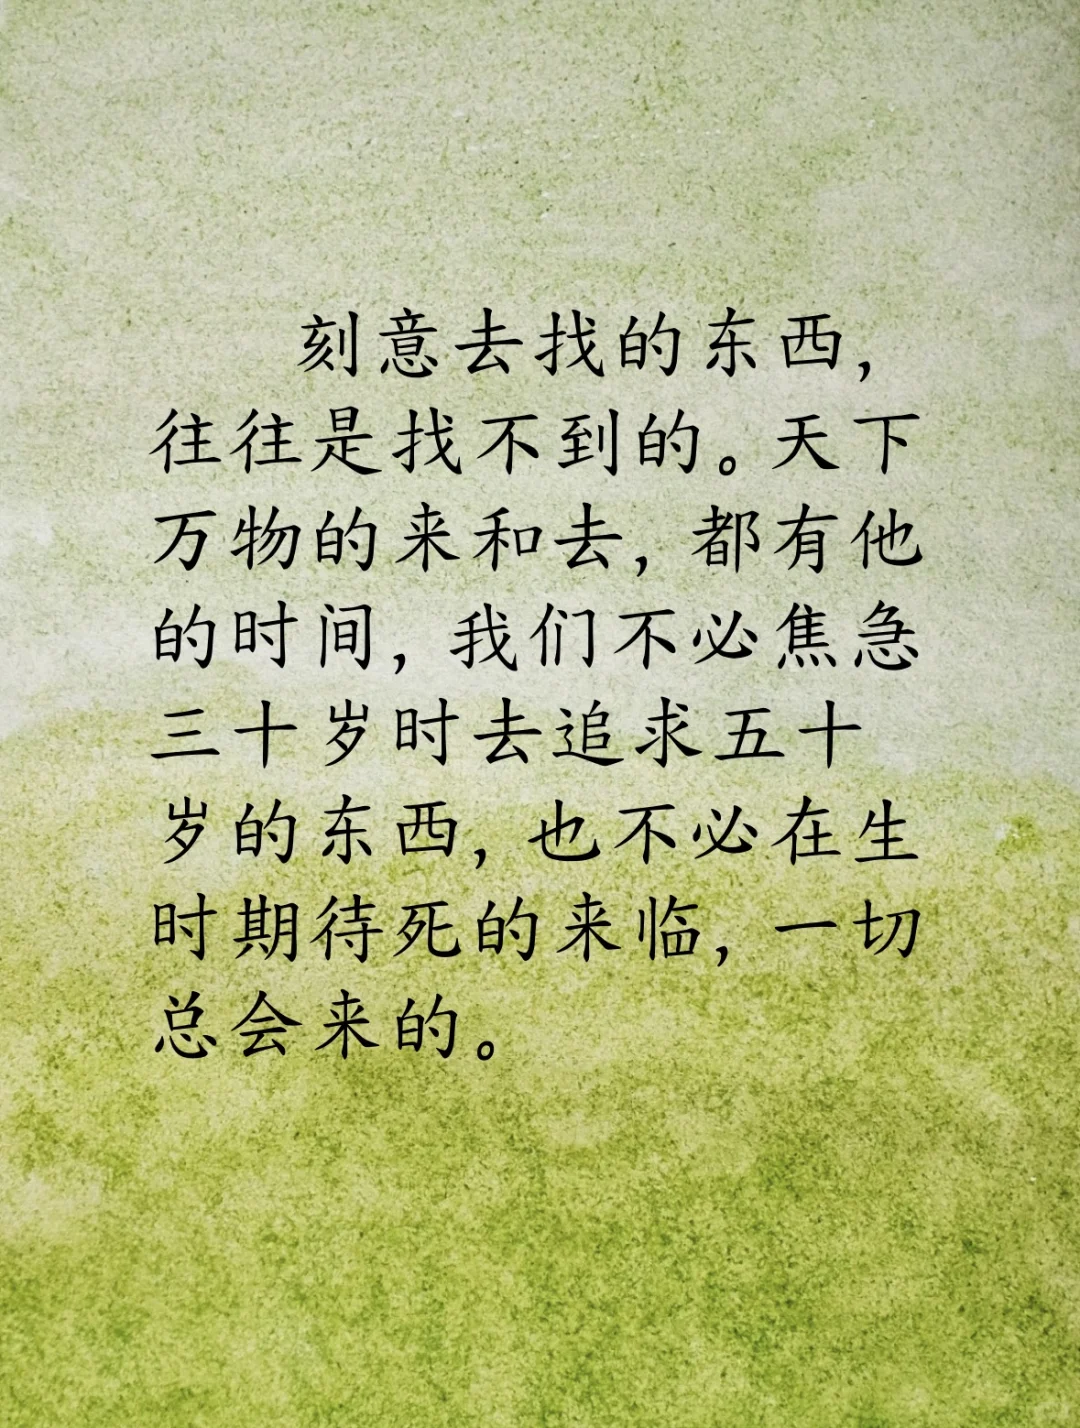 刻意去找的东西，
往往是找不到的。天下
万物的来和去，都有他
的时间，我们不必焦急
三十岁时去追求五十
岁的东西，也不必在生
时期待死的来临，一切
总会来的。